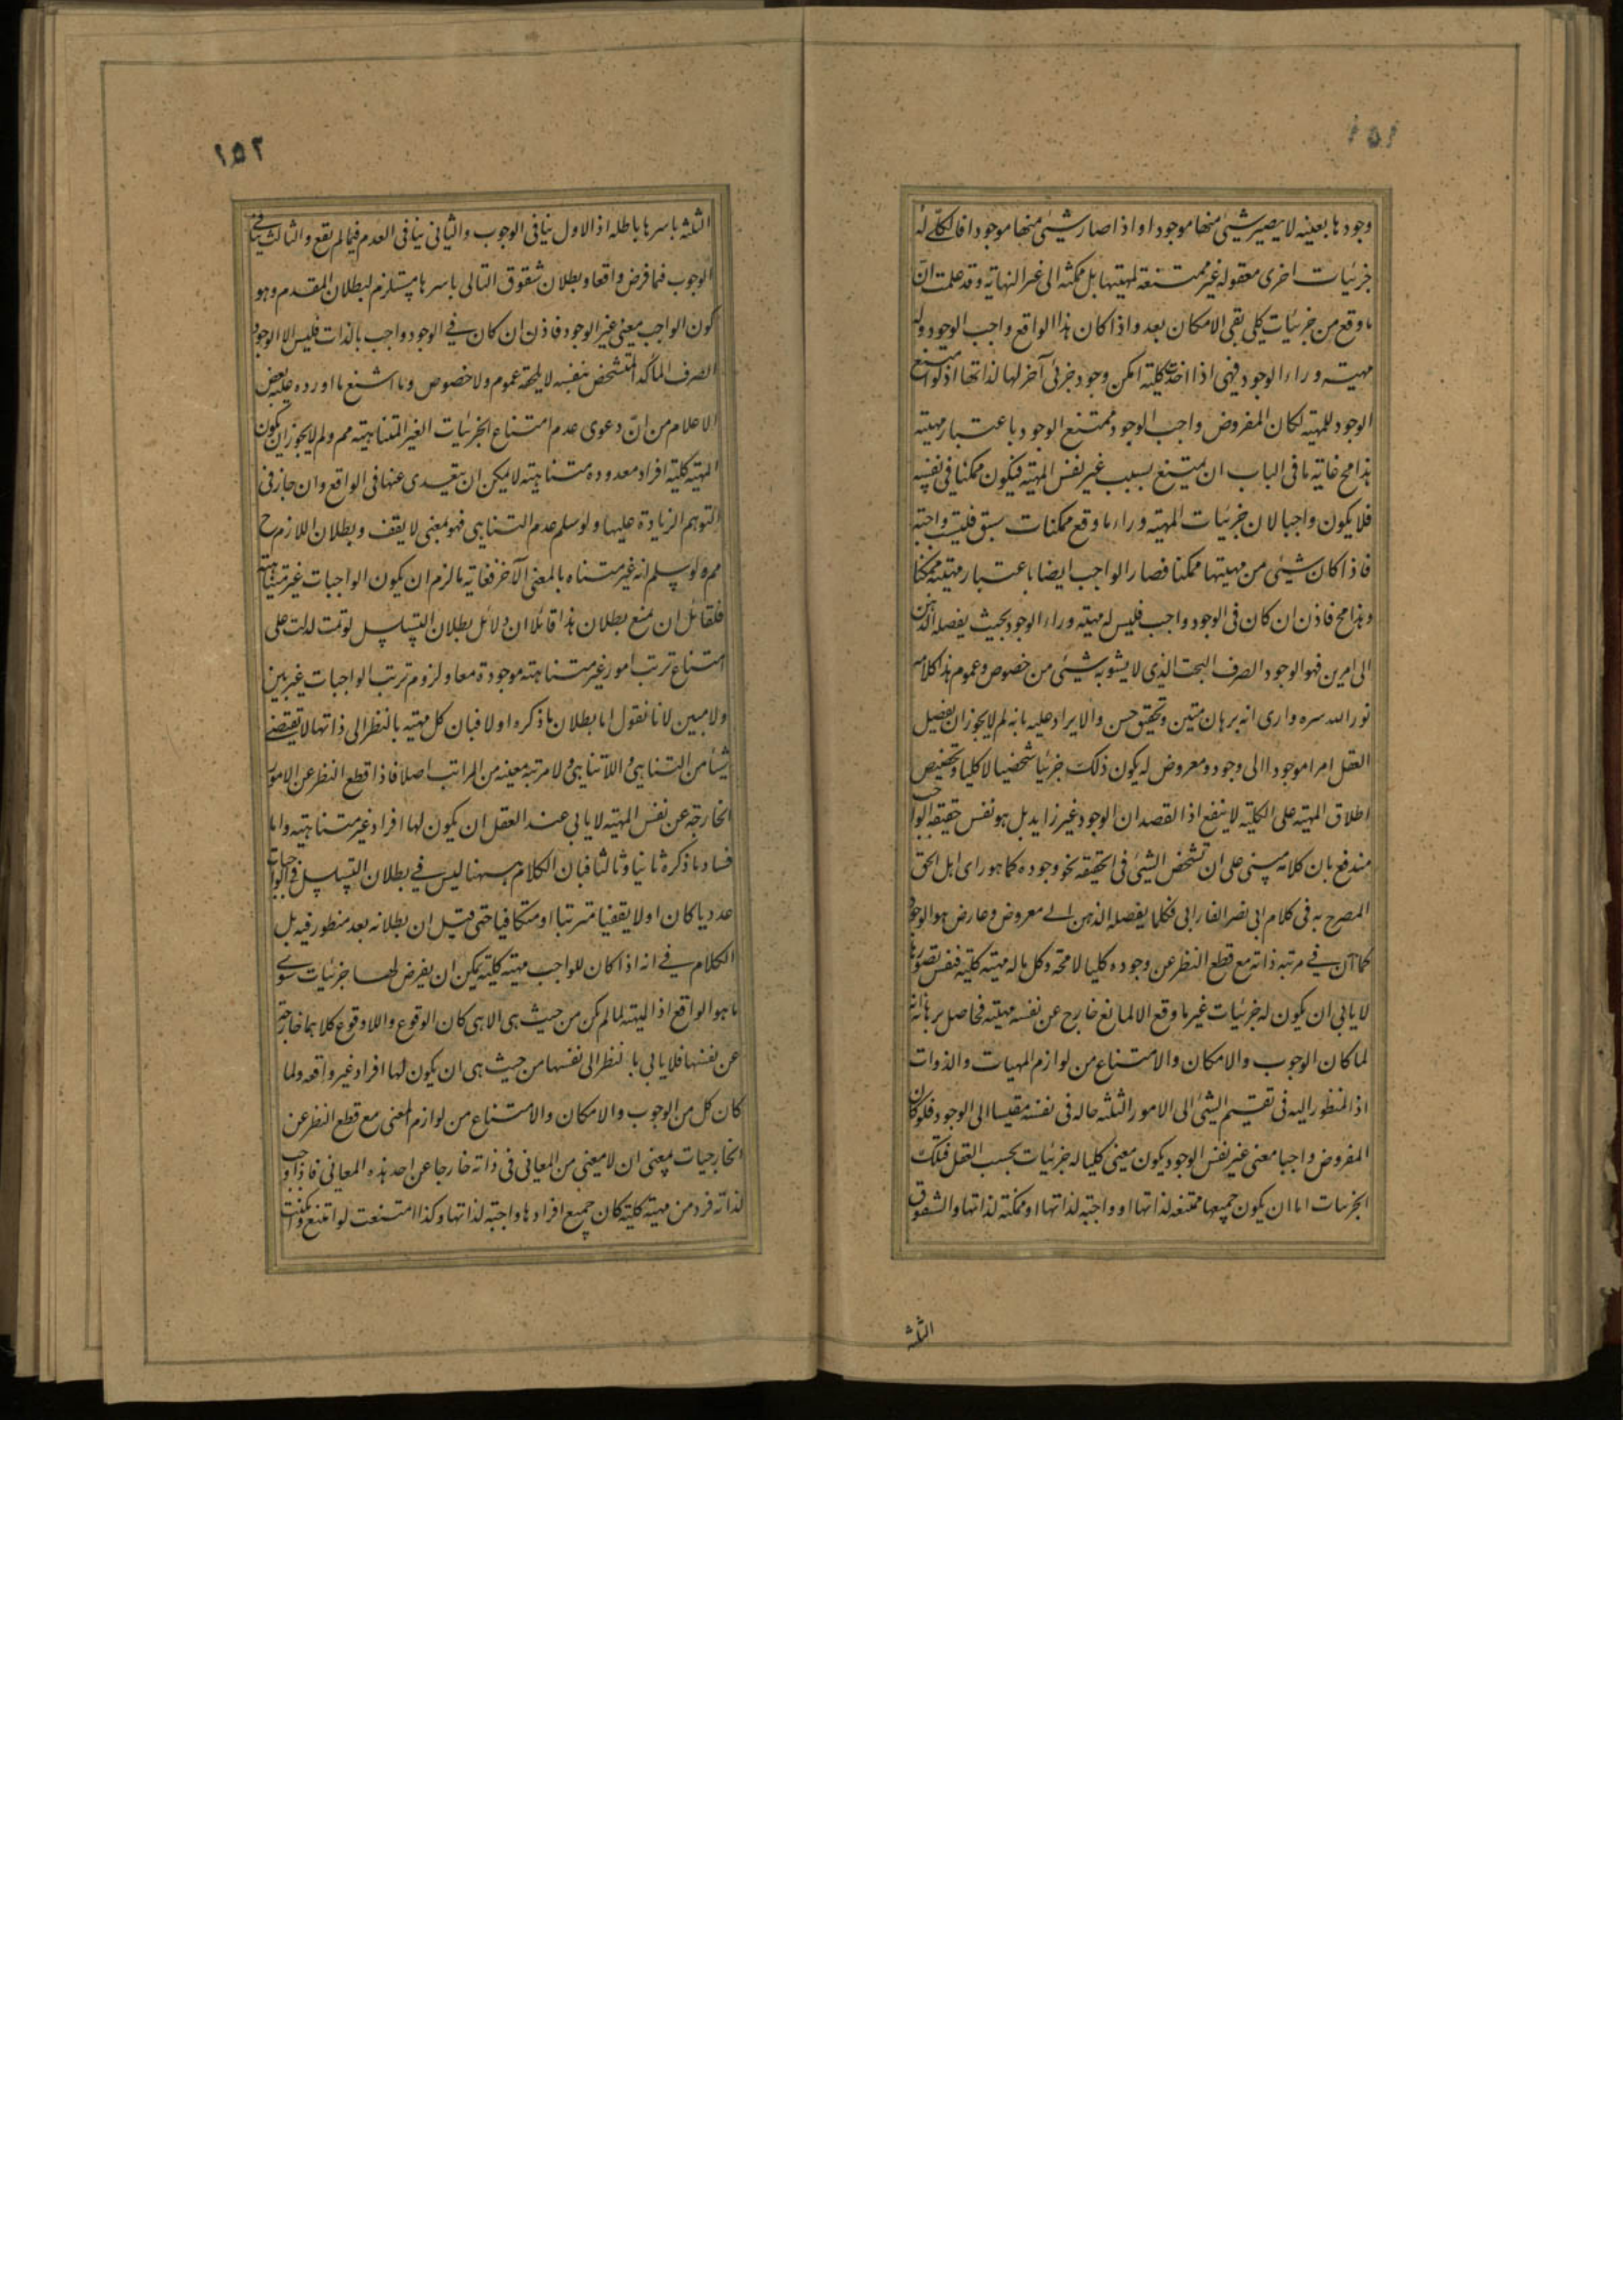 ١٥١
وجودها بعينه لا يصير شيئ منها موجودا و اذا صار شيئ منها موجودا فالكلي له
جزئيات اخرى معقوله غير ممتنعة لمهيتها بل ممكنه الى غير النهاية وقد علمت ان
ما وقع من جزئيات كلي بقى الامكان بعد واذا كان هذا الواقع واجب الوجود وله
مهية وراء الوجود فهى اذا اخذت كلية امكن وجود جزئى آخر لها لذاتها اذ لو امتنع
الوجود للمهية لكان المفروض واجب الوجود ممتنع الوجود باعتبار مهيته
هذا مح غاية ما فى الباب ان يمتنع بسبب غير نفس المهية فيكون ممكنا فى نفسه
فلا يكون واجبا لان جزئيات المهية وراء ما وقع ممكنات سبق فليست واجبة
فاذا كان شيئ من مهيتها ممكنا فصار الواجب ايضا باعتبار مهيته ممكنا
وهذا مح فاذن ان كان فى الوجود واجب فليس له مهية وراء الوجود بحيث يفصله الذهن
الى امرين فهو الوجود الصرف البحت الذى لا يشوبه شيئ من خصوص وعموم هذا كلامه
نور الله سره وارى انه برهان متين وتحقيق حسن والايراد عليه بانه لم لا يجوز ان يفصل
العقل امرا موجودا الى وجود ومعروض له يكون ذلك جزئيا شخصيا لا كليا وتخصيص
اطلاق المهية على الكلية لا ينفع اذ القصد ان الوجود غير زايد بل هو نفس حقيقه الواجب
مندفع بان كلامه مبنى على ان تشخص الشيئ فى الحقيقة نحو وجوده كما هو راى اهل الحق
المصرح به فى كلام ابى نصر الفارابى فكلما يفصله الذهن الى معروض وعارض هو الوجود
كان فى مرتبه ذاته مع قطع النظر عن وجوده كليا لا محة وكل ما له مهية كلية فنفس تصورها
لا يابى ان يكون له جزئيات غير ما وقع الا لمانع خارج عن نفس مهيته فحاصل برهانه انه
لما كان الوجوب والامكان والامتناع من لوازم المهيات والذوات
اذ المنظور اليه فى تقسيم الشيئ الى الامور الثلثه حاله فى نفسه مقيسا الى الوجود فلو كان
المفروض واجبا معنى غير نفس الوجود يكون معنى كليا له جزئيات بحسب العقل فتلك
الجزئيات اما ان يكون جميعها ممتنعه لذاتها او واجبة لذاتها او ممكنة لذاتها والشقوق
الثلثه
١٥٢
الثلثه باسرها باطله اذ الاول ينافى الوجوب والثانى ينافى العدم فيما لم يقع والثالث ينافى
الوجوب فيما فرض واقعا وبطلان شقوق التالى باسرها مستلزم لبطلان المقدم وهو
كون الواجب معنى غير الوجود فاذن ان كان فى الوجود واجب بالذات فليس الا الوجود
الصرف المتأكد المتشخص بنفسه لا يلحقه عموم ولا خصوص وما اشنع ما اورده عليه بعض
الاعلام من ان دعوى عدم امتناع الجزئيات الغير المتناهية مم ولم لا يجوز ان يكون
المهية كلية افراد معدوده متناهية لا يمكن ان يتعدى عنها فى الواقع وان جاز فى
التوهم الزيادة عليها ولو سلم عدم التناهى فهو بمعنى لا يقف وبطلان اللازم ح
مم ولو سلم انه غير متناه بالمعنى الآخر فغاية ما لزم ان يكون الواجبات غير متناهية
فلقائل ان يمنع بطلان هذا قائلا ان دلائل بطلان التسلسل لو تمت لدلت على
امتناع ترتب امور غير متناهية موجودة معا ولزوم ترتب الواجبات غير بين
ولا مبين لانا نقول اما بطلان ما ذكره اولا فبان كل مهية بالنظر الى ذاتها لا تقتضى
شيئا من التناهى واللاتناهى ولا مرتبة معينه من المراتب اصلا فاذا قطع النظر عن الامور
الخارجة عن نفس المهية لا يابى عند العقل ان يكون لها افراد غير متناهية واما
فساد ما ذكره ثانيا وثالثا فبان الكلام ههنا ليس فى بطلان التسلسل فى الواجبات
عدديا كان او لا يقفيا مترتبا او متكافيا حتى قيل ان بطلانه بعد منظور فيه بل
الكلام فى انه اذا كان للواجب مهية كلية يمكن ان يفرض لها جزئيات سوى
ما هو الواقع اذ المهية لما لم يكن من حيث هى الا هى كان الوقوع واللاوقوع كلاهما خارجة
عن نفسها فلا يابى بالنظر الى نفسها من حيث هى ان يكون لها افراد غير واقعه ولما
كان كل من الوجوب والامكان والامتناع من لوازم المعنى مع قطع النظر عن
الخارجيات بمعنى ان لا معنى من المعانى فى ذاته خارجا عن احد هذه المعانى فاذا وجب
لذاته فرد من مهية كلية كان جميع افرادها واجبة لذاتها وكذا امتنعت لو امتنع وامكنت